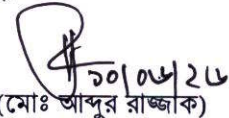 ১০/০৬/২৬
(মোঃ আব্দুর রাজ্জাক)